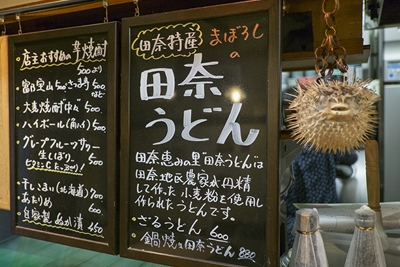 店主おすすめの芋焼酎
500より
富乃宝山 500 さつま寿 500
など
大麦焼酎中々 500
ハイボール(角ハイ) 500
グレープフルーツサワー
生しぼり 500
ビタミンCたっぷり!
干しこまい(北海道) 700
あたりめ 600
自家製ぬか漬 450
田奈特産 まぼろし
の
田奈
うどん
田奈恵みの里"田奈うどん"は
田奈地区農家が丹精
して作った小麦粉を使用し
作られたうどんです。
ざるうどん 600
鍋焼き田奈うどん 880